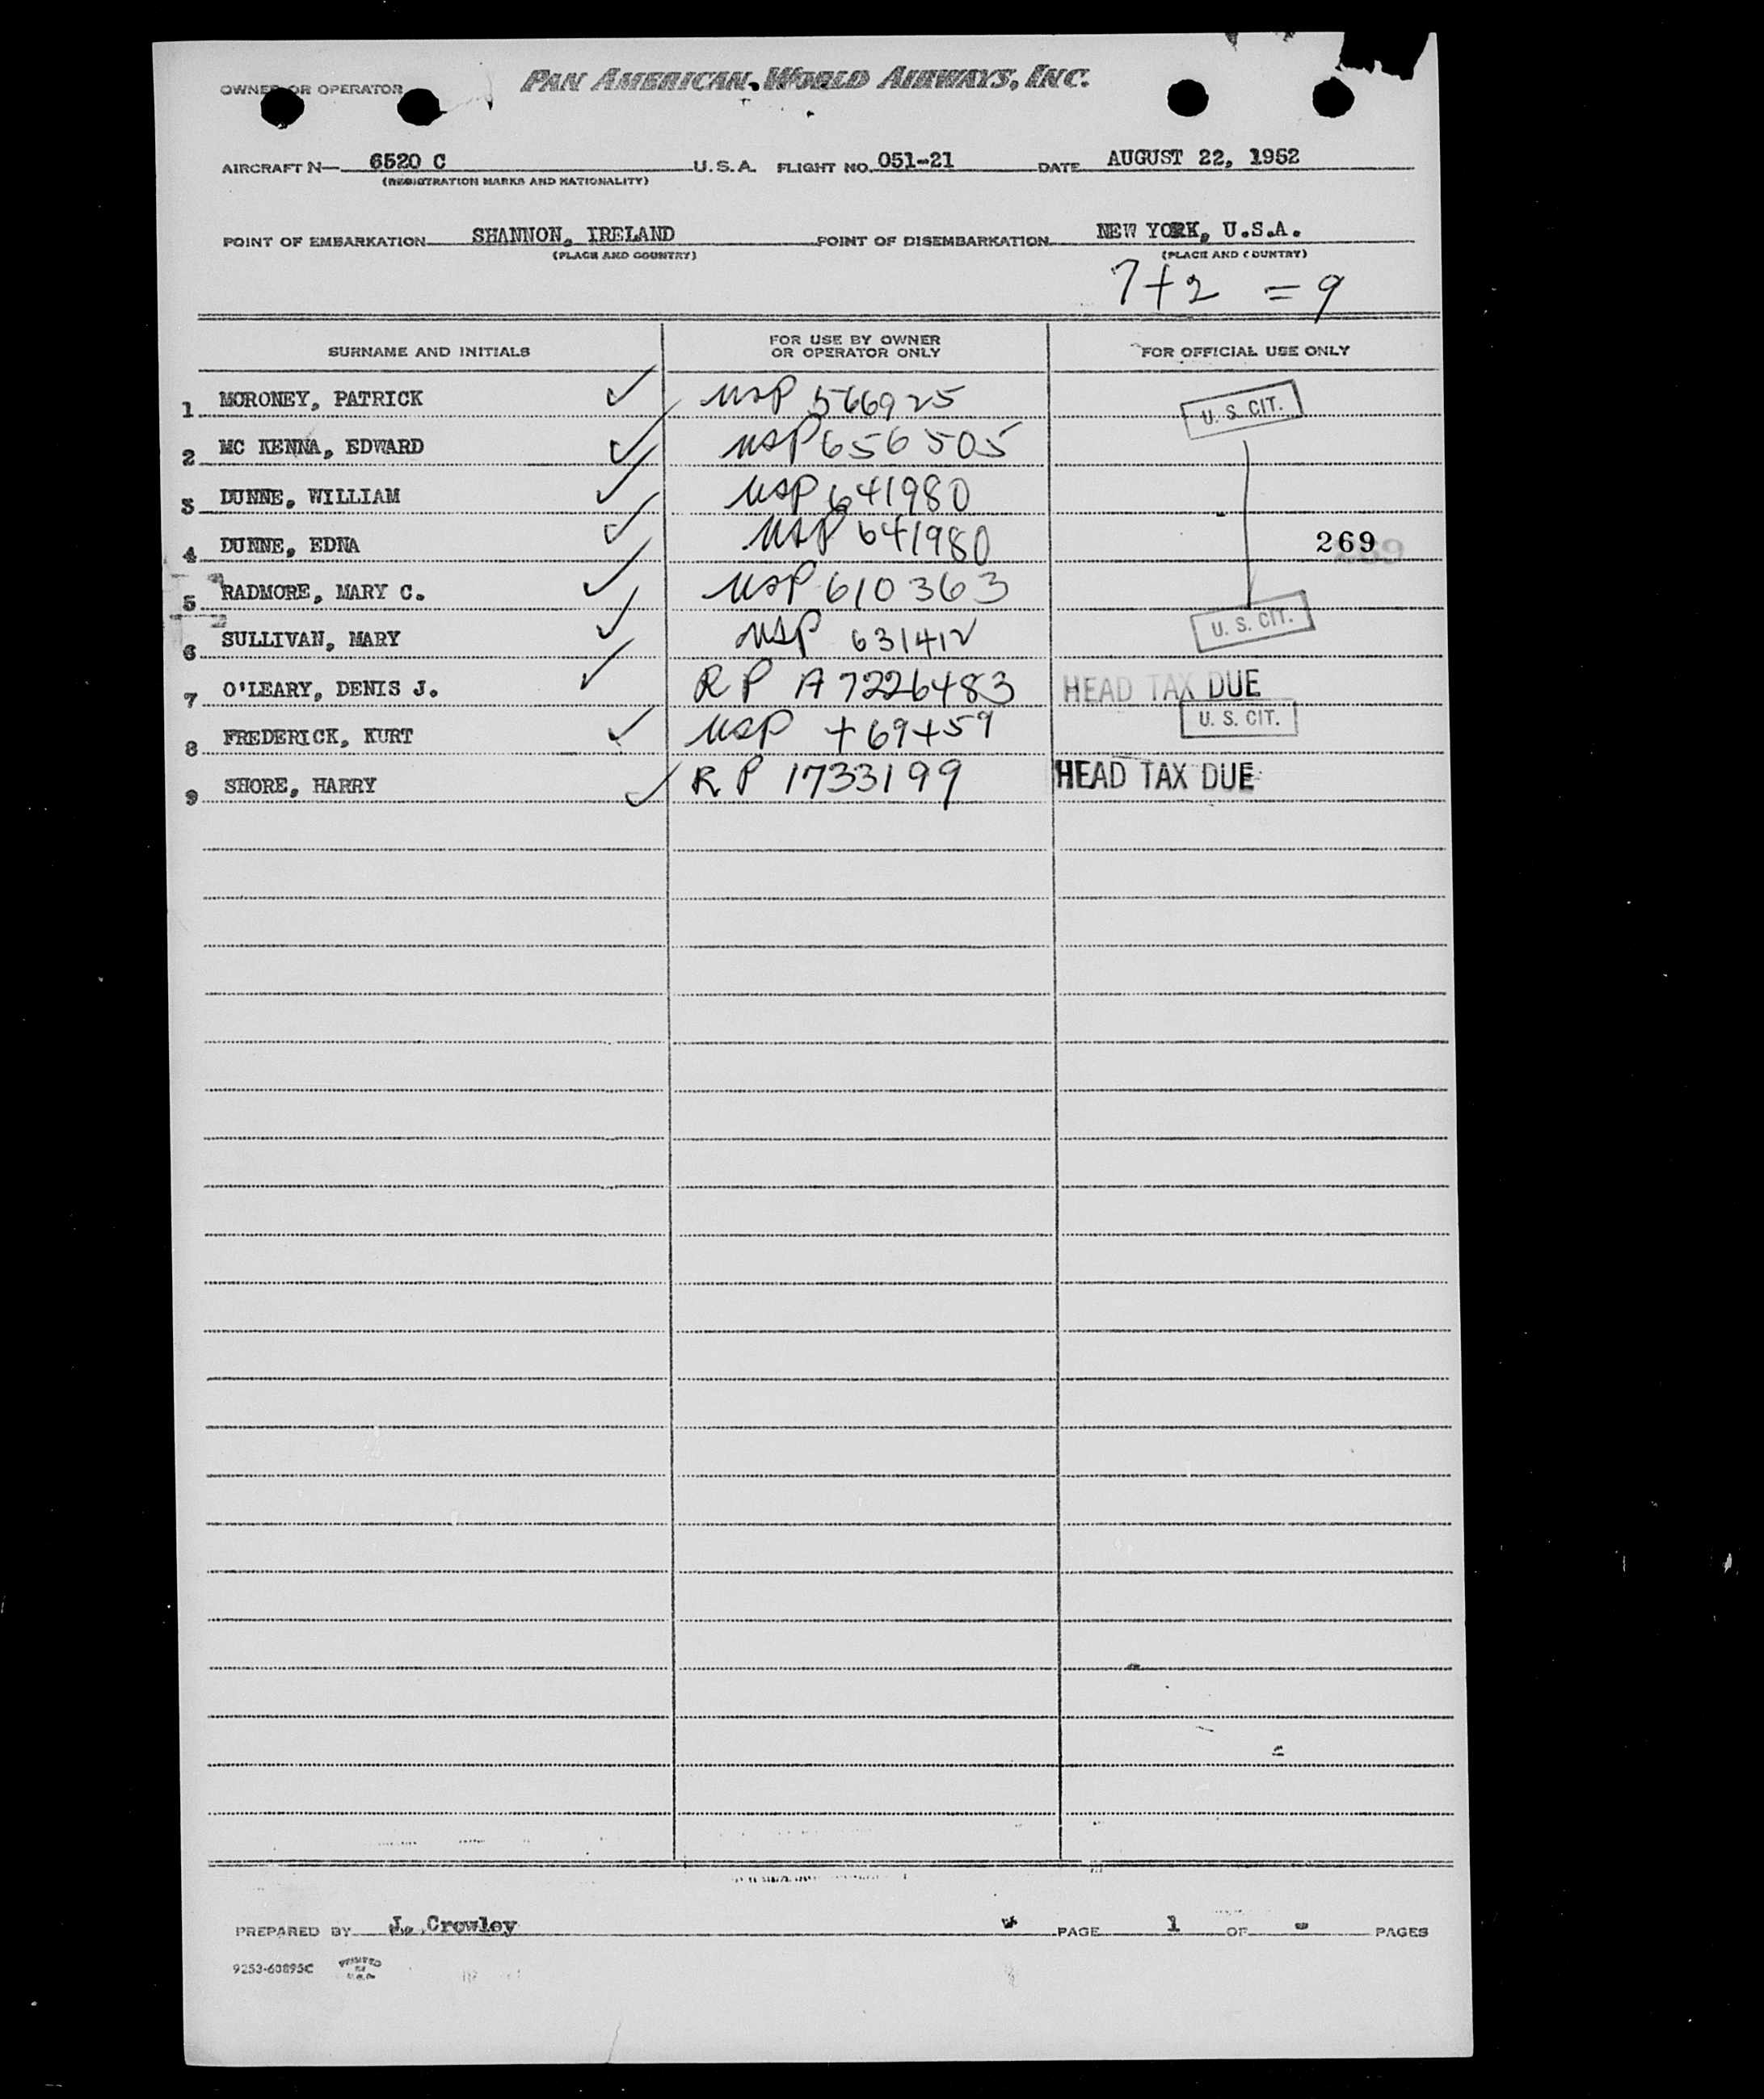 OWNER OR OPERATOR PAN AMERICAN WORLD AIRWAYS, INC.
AIRCRAFT N— 6520 C U.S.A. FLIGHT NO. 051-21 DATE AUGUST 22, 1952
(REGISTRATION MARKS AND NATIONALITY)
POINT OF EMBARKATION SHANNON, IRELAND POINT OF DISEMBARKATION NEW YORK, U.S.A.
(PLACE AND COUNTRY) (PLACE AND COUNTRY)
7+2 = 9
SURNAME AND INITIALS FOR USE BY OWNER OR OPERATOR ONLY FOR OFFICIAL USE ONLY
1 MORONEY, PATRICK ✓ USP 566925 U. S. CIT.
2 MC KENNA, EDWARD ✓ USP 656505
3 DUNNE, WILLIAM ✓ USP 641980
4 DUNNE, EDNA ✓ USP 641980 269
5 RADMORE, MARY C. ✓ USP 610363
6 SULLIVAN, MARY ✓ USP 631412 U. S. CIT.
7 O'LEARY, DENIS J. ✓ RP A7226483 HEAD TAX DUE
8 FREDERICK, KURT ✓ USP 469459 U. S. CIT.
9 SHORE, HARRY ✓ RP 1733199 HEAD TAX DUE
PREPARED BY J. Crowley PAGE 1 OF - PAGES
9253-60895C PRINTED IN U.S.A.